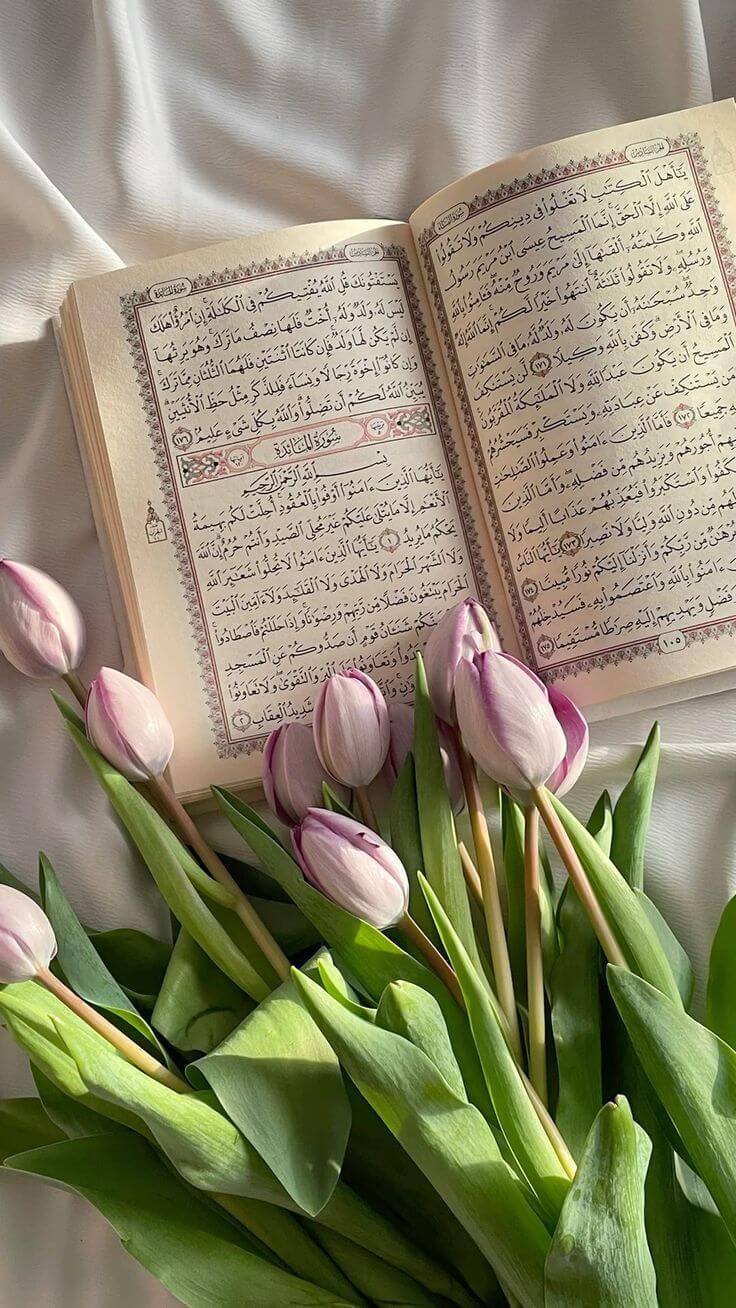 الجزء السادس
يَٰٓأَهْلَ ٱلْكِتَٰبِ لَا تَغْلُوا۟ فِى دِينِكُمْ وَلَا تَقُولُوا۟
عَلَى ٱللَّهِ إِلَّا ٱلْحَقَّ إِنَّمَا ٱلْمَسِيحُ عِيسَى ٱبْنُ مَرْيَمَ رَسُولُ
ٱللَّهِ وَكَلِمَتُهُۥٓ أَلْقَىٰهَآ إِلَىٰ مَرْيَمَ وَرُوحٌ مِّنْهُ فَـَٔامِنُوا۟ بِٱللَّهِ
وَرُسُلِهِۦ وَلَا تَقُولُوا۟ ثَلَٰثَةٌ ٱنتَهُوا۟ خَيْرًا لَّكُمْ إِنَّمَا ٱللَّهُ إِلَٰهٌ
وَٰحِدٌ سُبْحَٰنَهُۥٓ أَن يَكُونَ لَهُۥ وَلَدٌ لَّهُۥ مَا فِى ٱلسَّمَٰوَٰتِ
وَمَا فِى ٱلْأَرْضِ وَكَفَىٰ بِٱللَّهِ وَكِيلًا ١٧١ لَّن يَسْتَنكِفَ
ٱلْمَسِيحُ أَن يَكُونَ عَبْدًا لِّلَّهِ وَلَا ٱلْمَلَٰٓئِكَةُ ٱلْمُقَرَّبُونَ
مَن يَسْتَنكِفْ عَنْ عِبَادَتِهِۦ وَيَسْتَكْبِرْ فَسَيَحْشُرُهُمْ
جَمِيعًا ١٧٢ فَأَمَّا ٱلَّذِينَ ءَامَنُوا۟ وَعَمِلُوا۟ ٱلصَّٰلِحَٰتِ
أُجُورَهُمْ وَيَزِيدُهُم مِّن فَضْلِهِۦ وَأَمَّا ٱلَّذِينَ
وَٱسْتَكْبَرُوا۟ فَيُعَذِّبُهُمْ عَذَابًا أَلِيمًا وَلَا
لَهُم مِّن دُونِ ٱللَّهِ وَلِيًّا وَلَا نَصِيرًا ١٧٣ يَٰٓأَيُّهَا ٱلنَّاسُ
مِّن رَّبِّكُمْ وَأَنزَلْنَآ إِلَيْكُمْ نُورًا مُّبِينًا ١٧٤
ءَامَنُوا۟ بِٱللَّهِ وَٱعْتَصَمُوا۟ بِهِۦ فَسَيُدْخِلُهُمْ
فَضْلٍ وَيَهْدِيهِمْ إِلَيْهِ صِرَٰطًا مُّسْتَقِيمًا ١٧٥
١٠٥
الجزء السادس
سورة المائدة
يَسْتَفْتُونَكَ قُلِ ٱللَّهُ يُفْتِيكُمْ فِى ٱلْكَلَٰلَةِ إِنِ ٱمْرُؤٌا۟ هَلَكَ
لَيْسَ لَهُۥ وَلَدٌ وَلَهُۥٓ أُخْتٌ فَلَهَا نِصْفُ مَا تَرَكَ وَهُوَ يَرِثُهَآ
إِن لَّمْ يَكُن لَّهَا وَلَدٌ فَإِن كَانَتَا ٱثْنَتَيْنِ فَلَهُمَا ٱلثُّلُثَانِ مِمَّا تَرَكَ
وَإِن كَانُوٓا۟ إِخْوَةً رِّجَالًا وَنِسَآءً فَلِلذَّكَرِ مِثْلُ حَظِّ ٱلْأُنثَيَيْنِ
يُبَيِّنُ ٱللَّهُ لَكُمْ أَن تَضِلُّوا۟ وَٱللَّهُ بِكُلِّ شَىْءٍ عَلِيمٌۢ ١٧٦
سُورَةُ المَائِدَةِ
بِسْمِ ٱللَّهِ ٱلرَّحْمَٰنِ ٱلرَّحِيمِ
يَٰٓأَيُّهَا ٱلَّذِينَ ءَامَنُوٓا۟ أَوْفُوا۟ بِٱلْعُقُودِ أُحِلَّتْ لَكُم بَهِيمَةُ
ٱلْأَنْعَٰمِ إِلَّا مَا يُتْلَىٰ عَلَيْكُمْ غَيْرَ مُحِلِّى ٱلصَّيْدِ وَأَنتُمْ حُرُمٌ إِنَّ ٱللَّهَ
يَحْكُمُ مَا يُرِيدُ ١ يَٰٓأَيُّهَا ٱلَّذِينَ ءَامَنُوا۟ لَا تُحِلُّوا۟ شَعَٰٓئِرَ ٱللَّهِ
وَلَا ٱلشَّهْرَ ٱلْحَرَامَ وَلَا ٱلْهَدْىَ وَلَا ٱلْقَلَٰٓئِدَ وَلَآ ءَآمِّينَ ٱلْبَيْتَ
ٱلْحَرَامَ يَبْتَغُونَ فَضْلًا مِّن رَّبِّهِمْ وَرِضْوَٰنًا وَإِذَا حَلَلْتُمْ فَٱصْطَادُوا۟
شَنَـَٔانُ قَوْمٍ أَن صَدُّوكُمْ عَنِ ٱلْمَسْجِدِ
وَتَعَاوَنُوا۟ عَلَى ٱلْبِرِّ وَٱلتَّقْوَىٰ وَلَا تَعَاوَنُوا۟
شَدِيدُ ٱلْعِقَابِ ٢